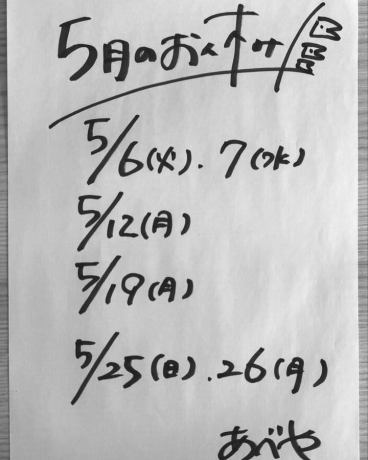 5月のおやすみ
5/6(火).7(水)
5/12(月)
5/19(月)
5/25(日).26(月)
あべや